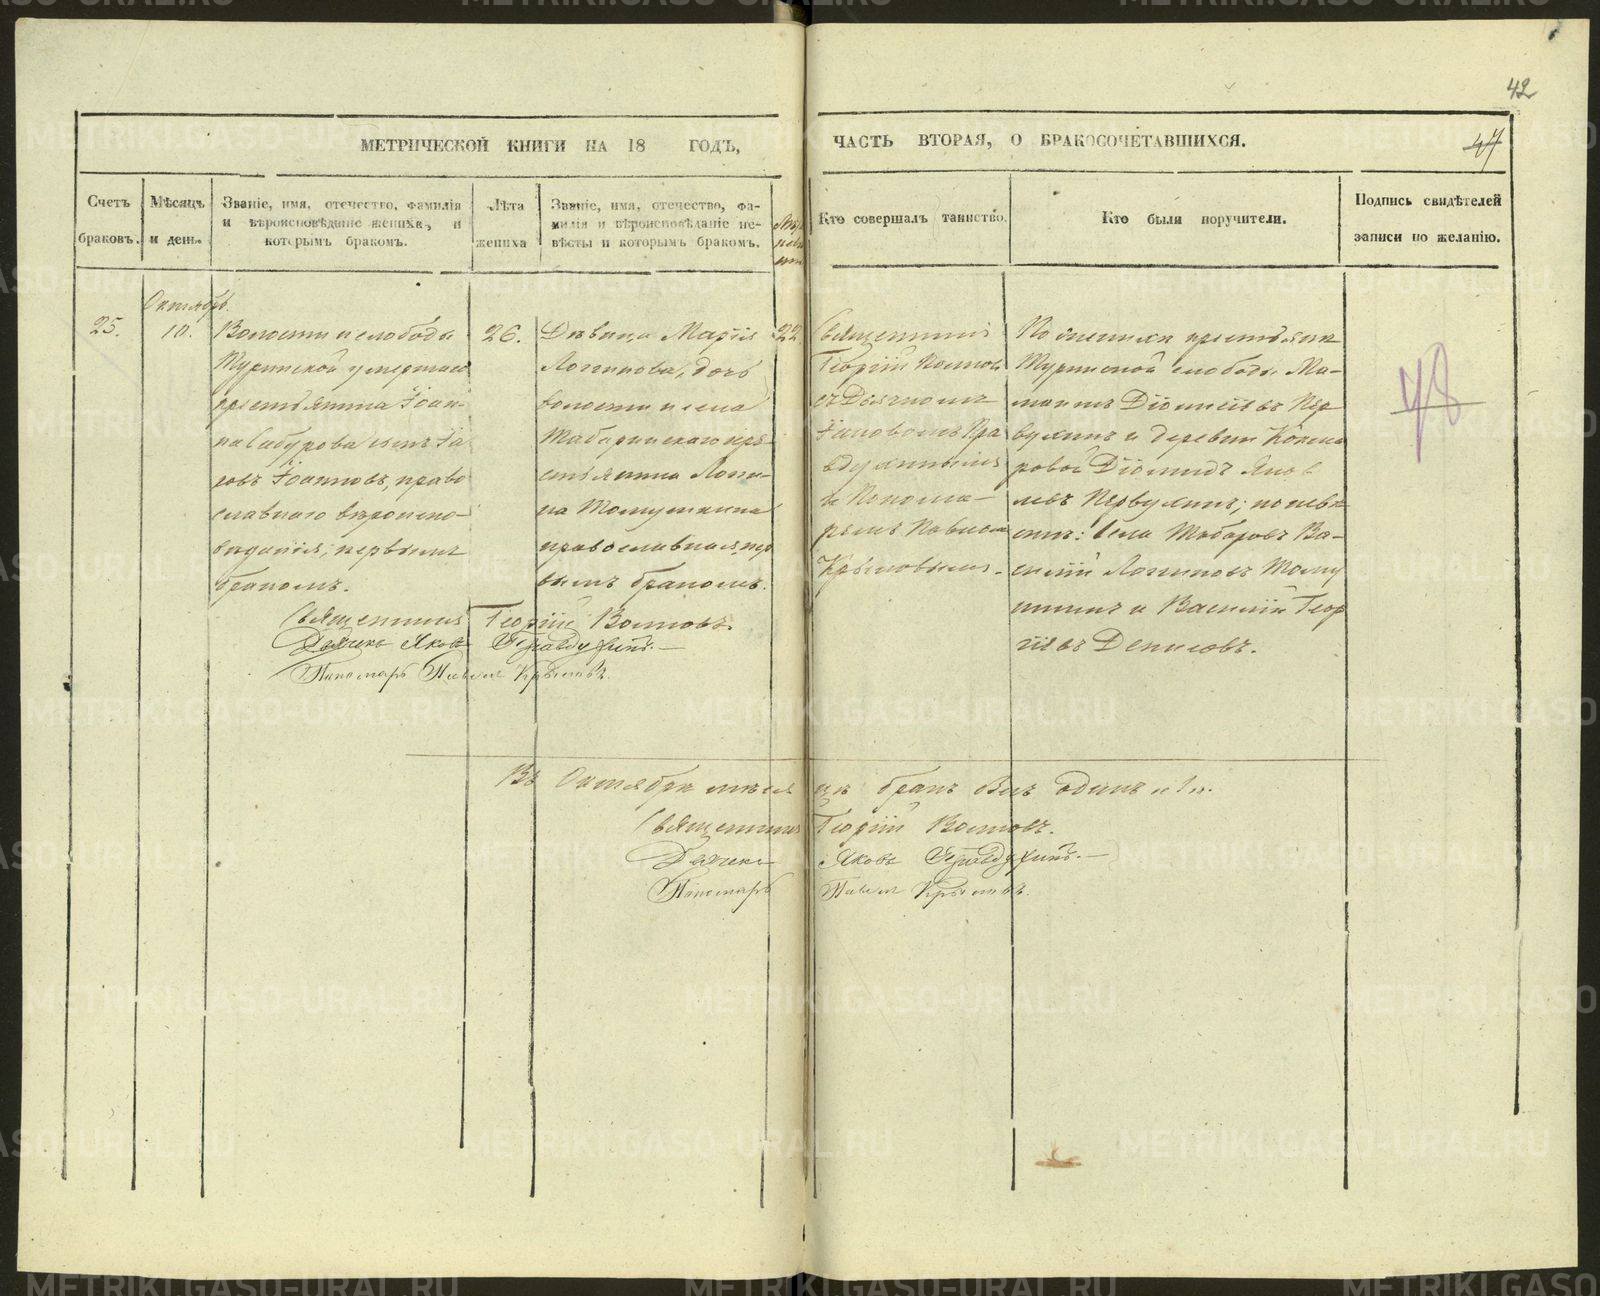 42
МЕТРИЧЕСКОЙ КНИГИ НА 18 ГОДЪ,
ЧАСТЬ ВТОРАЯ, О БРАКОСОЧЕТАВШИХСЯ.
47
Счетъ браковъ.
Мѣсяцъ и день.
Званіе, имя, отечество, фамилія
и вѣроисповѣданіе жениха, и
которымъ бракомъ.
Лѣта жениха
Званіе, имя, отечество, фа-
милія и вѣроисповѣданіе не-
вѣсты и которымъ бракомъ.
Кто совершалъ таинство.
Кто были поручители.
Подпись свидѣтелей
записи по желанію.
Октябрь.
25.
10.
Волости и слободы
Туринской умершаго
крестьянина Іоан-
на Сабурова сынъ Іа
ковъ Іоанновъ, право
славнаго вѣроиспо-
вѣданія, первымъ
бракомъ.
26.
Дѣвица Марія
Логинова, дочь
волости и села
Табаринскаго кре
стьянина Логи-
на
православная, пер
вымъ бракомъ.
22.
Священникъ
Георгій
съ Дьячкомъ
Іаковомъ Пра
вдухинымъ
и Понома-
ремъ Павломъ
Крыловымъ.
По женихѣ крестьяне
Туринской слободы Ма-
Діонисіевъ Пер
вухинъ и деревни
ровой Діомидъ Яков
левъ Первухинъ; по невѣ
стѣ: Села Табаровъ Ва-
силій Логиновъ
и Василій Геор
гіевъ Денисовъ.
48
Священникъ Георгій
Дьячекъ Яковъ Правдухинъ.
Пономарь Павелъ Крыловъ.
Въ Октябрѣ мѣсяцѣ бракъ былъ одинъ „1„.
Священникъ Георгій
Дьячекъ Яковъ Правдухинъ.
Пономарь Павелъ Крыловъ.
METRIKI.GASO-URAL.RU